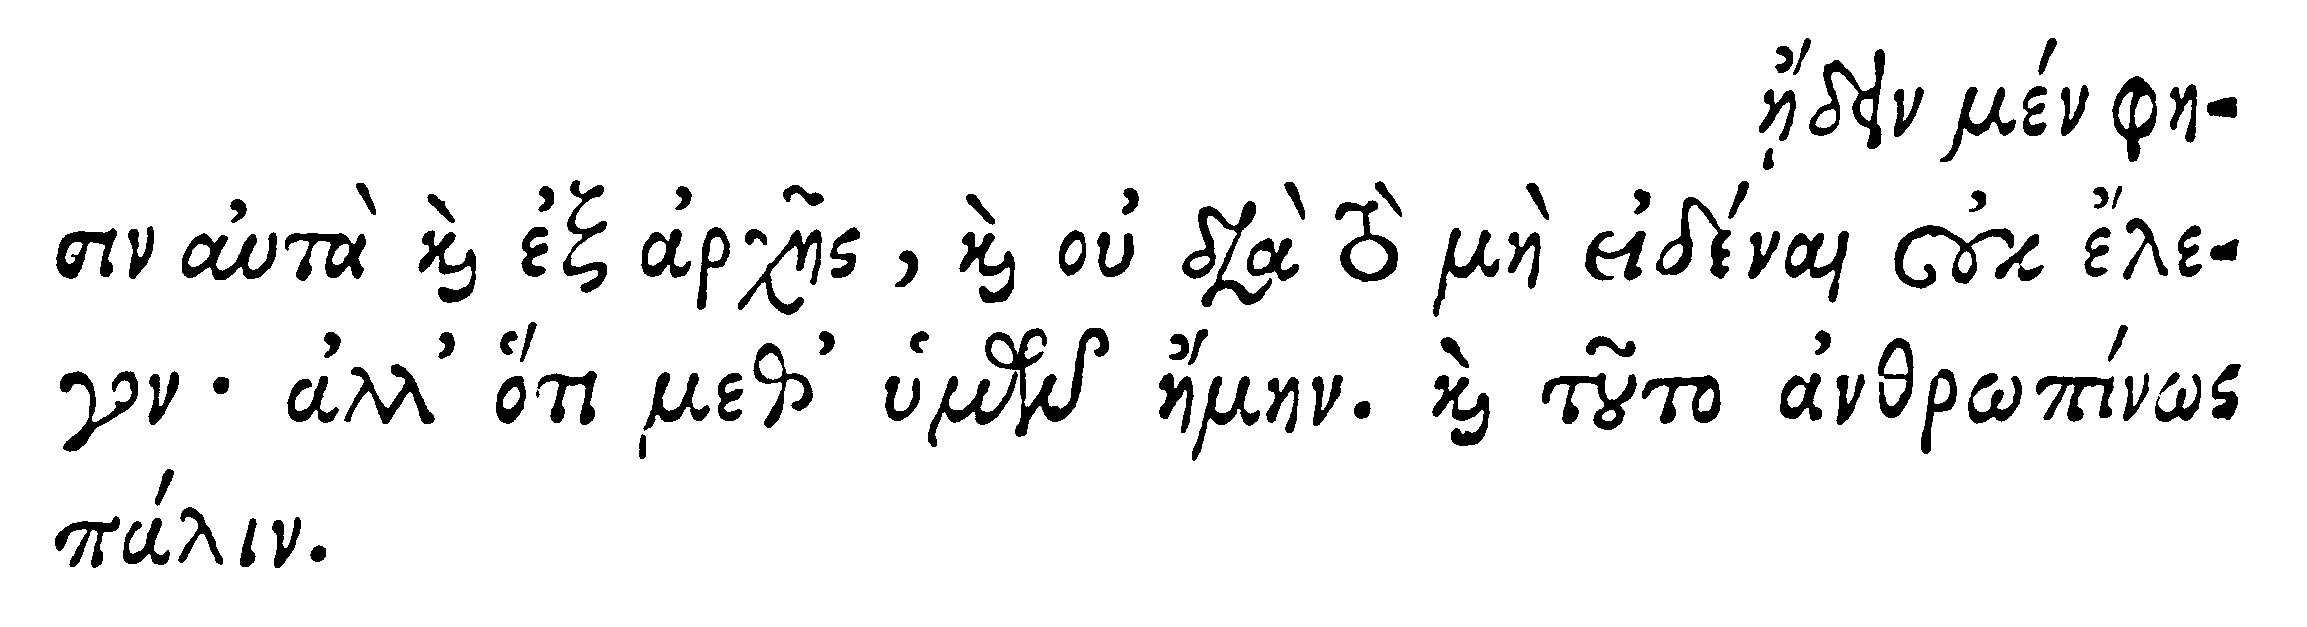 ᾔδειν μέν φη-
σιν αὐτὰ καὶ ἐξ ἀρχῆς, καὶ οὐ διὰ τὸ μὴ εἰδέναι οὐκ ἔλε-
γον· ἀλλ' ὅτι μεθ' ὑμῶν ἤμην. καὶ τοῦτο ἀνθρωπίνως
πάλιν.